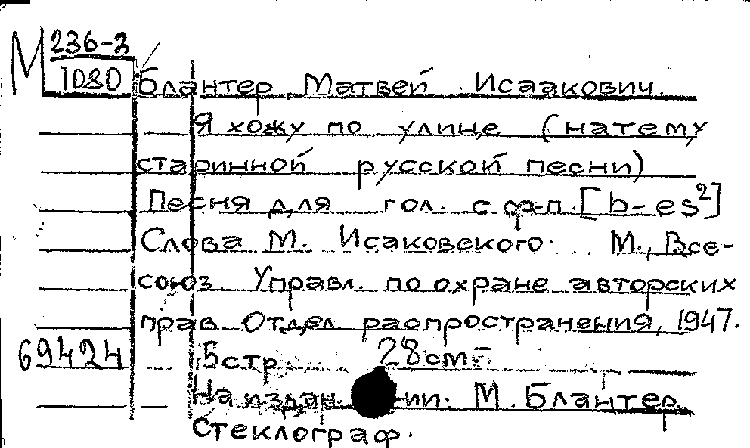 М 236-3
1080 Блантер, Матвей Исаакович.
Я хожу по улице (на тему
старинной русской песни)
Песня для гол. с ф-п. [b-es²]
Слова М. Исаковского. М., Все-
союз. Управл. по охране авторских
прав. Отдел распространения, 1947.
69424 5 стр. 28 см.
На издан. ии. М. Блантер
Стеклограф.